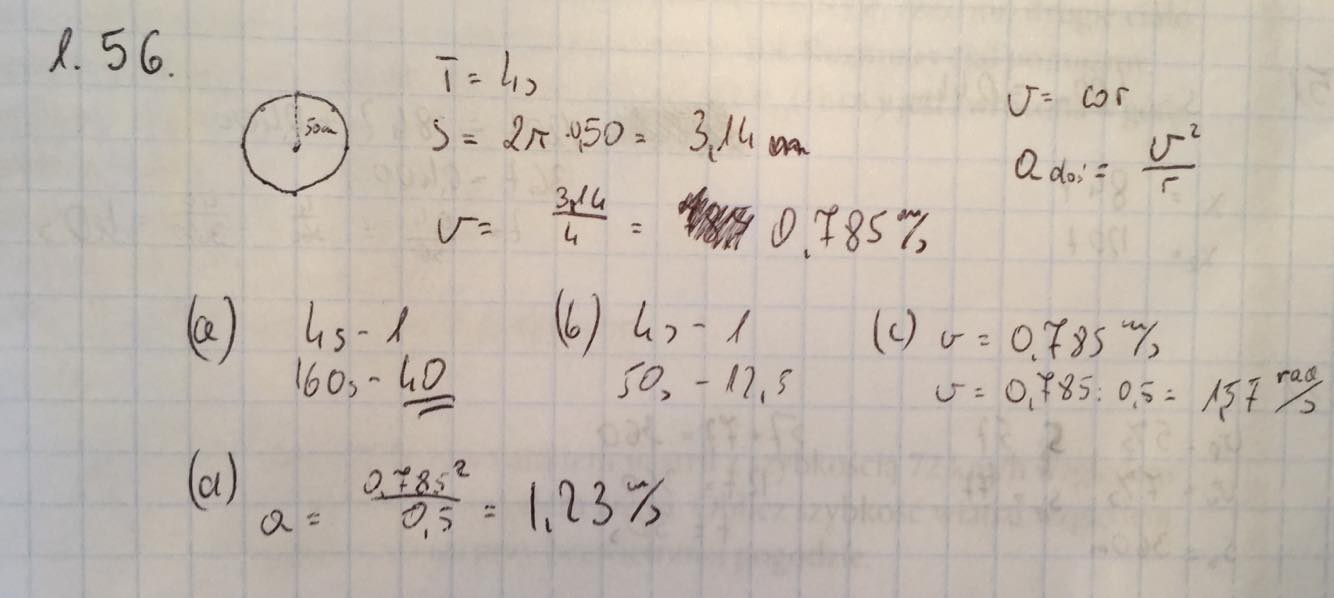 1.56.
50cm
T = 4s
S = 2π · 0,50 = 3,14
v = 3,14/4 = 0,785 m/s
v = ωr
a doś = v²/r
(a) 4s - 1
160s - 40
(b) 4s - 1
50s - 12,5
(c) v = 0,785 m/s
v = 0,785 : 0,5 = 1,57 rad/s
(d) a = 0,785²/0,5 = 1,23 m/s